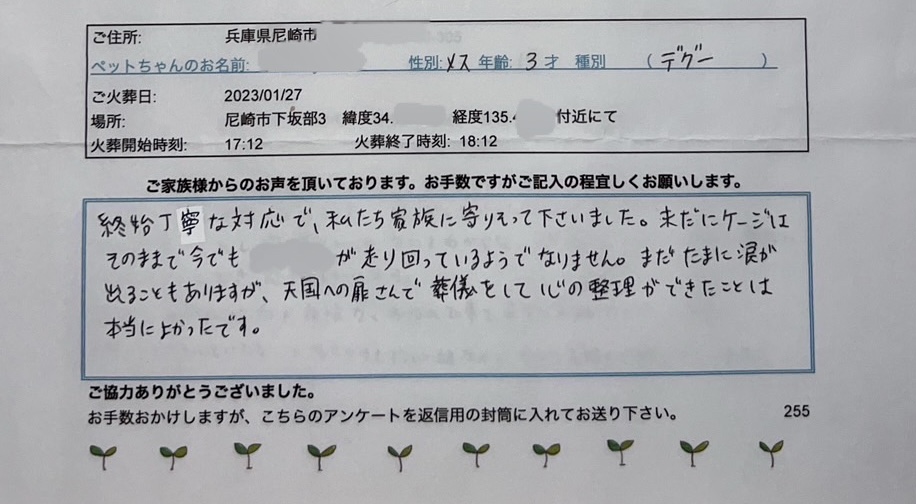 ご住所: 兵庫県尼崎市
ペットちゃんのお名前: 性別: メス 年齢: 3 才 種別 (デグー)
ご火葬日: 2023/01/27
場所: 尼崎市下坂部3 緯度34. 経度135. 付近にて
火葬開始時刻: 17:12 火葬終了時刻: 18:12
ご家族様からのお声を頂いております。お手数ですがご記入の程宜しくお願いします。
終始丁寧な対応で、私たち家族に寄りそって下さいました。未だにケージは
そのままで今でも が走り回っているようでなりません。まだたまに涙が
出ることもありますが、天国への扉さんで葬儀をして心の整理ができたことは
本当によかったです。
ご協力ありがとうございました。
お手数おかけしますが、こちらのアンケートを返信用の封筒に入れてお送り下さい。 255